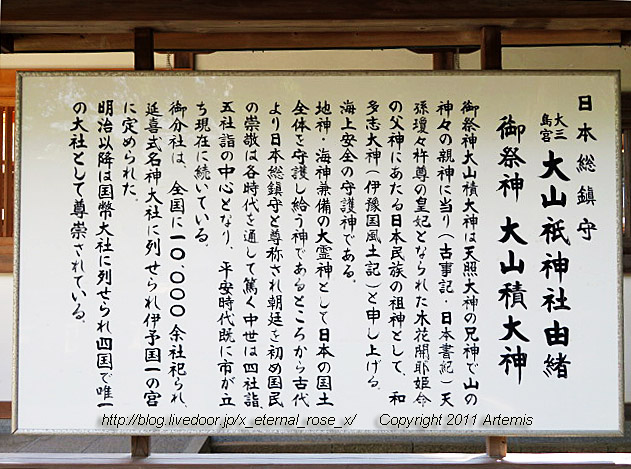 日本総鎮守
大三島宮 大山祇神社由緒
御祭神 大山積大神
御祭神大山積大神は天照大神の兄神で山の
神々の親神に当り(古事記・日本書紀)天
孫瓊々杵尊の皇妃となられた木花開耶姫命
の父神にあたる日本民族の祖神として、和
多志大神(伊豫国風土記)と申し上げる。
海上安全の守護神である。
地神・海神兼備の大霊神として日本の国土
全体を守護し給う神であるところから古代
より日本総鎮守と尊称され朝廷を初め国民
の崇敬は各時代を通して篤く中世は四社詣、
五社詣の中心となり、平安時代既に市が立
ち現在に続いている。
御分社は、全国に一〇、〇〇〇余社祀られ、
延喜式名神大社に列せられ伊予国一の宮
に定められた。
明治以降は国幣大社に列せられ四国で唯一
の大社として尊崇されている。
http://blog.livedoor.jp/x_eternal_rose_x/ Copyright 2011 Artemis